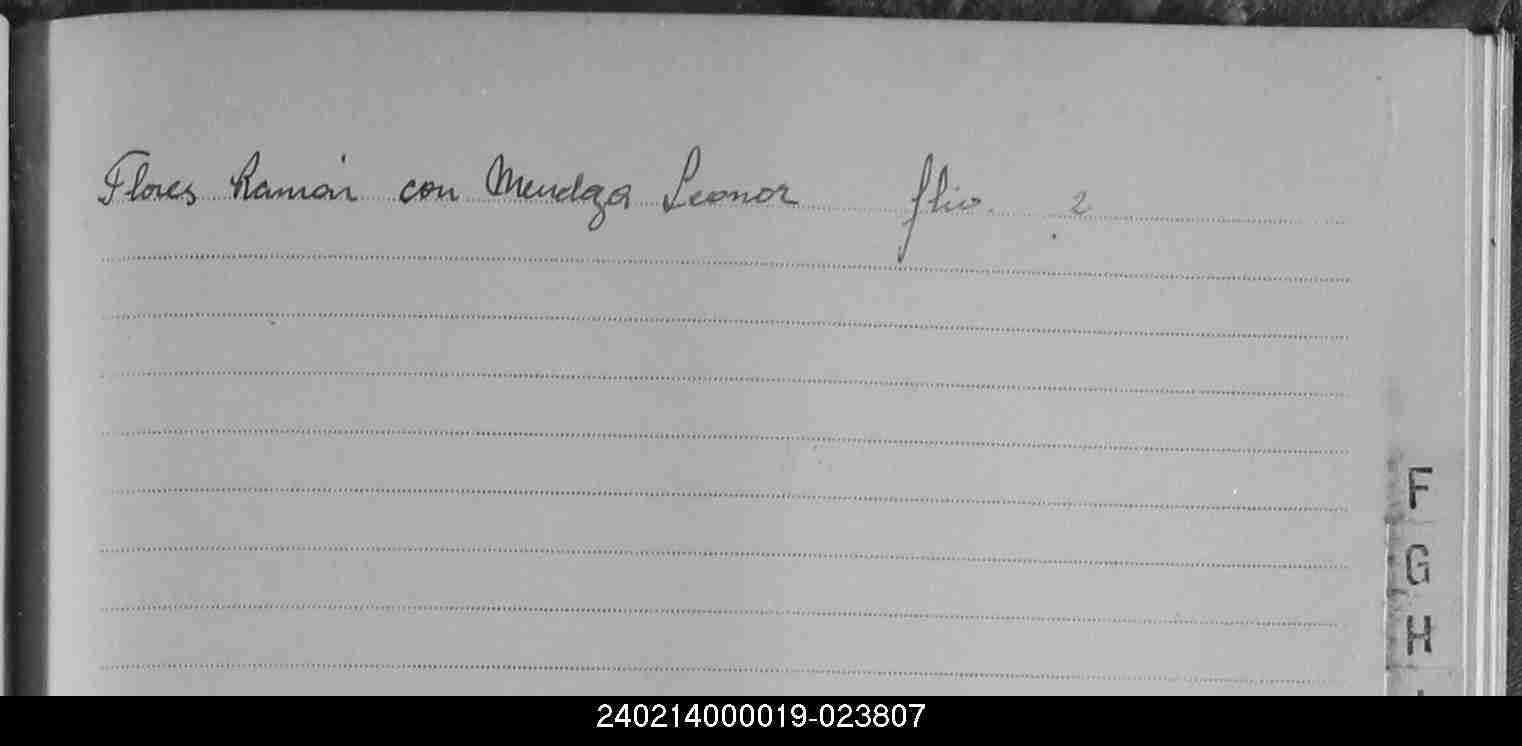 Flores Ramón con Mendoza Leonor flio. 2
F
G
H
240214000019-023807